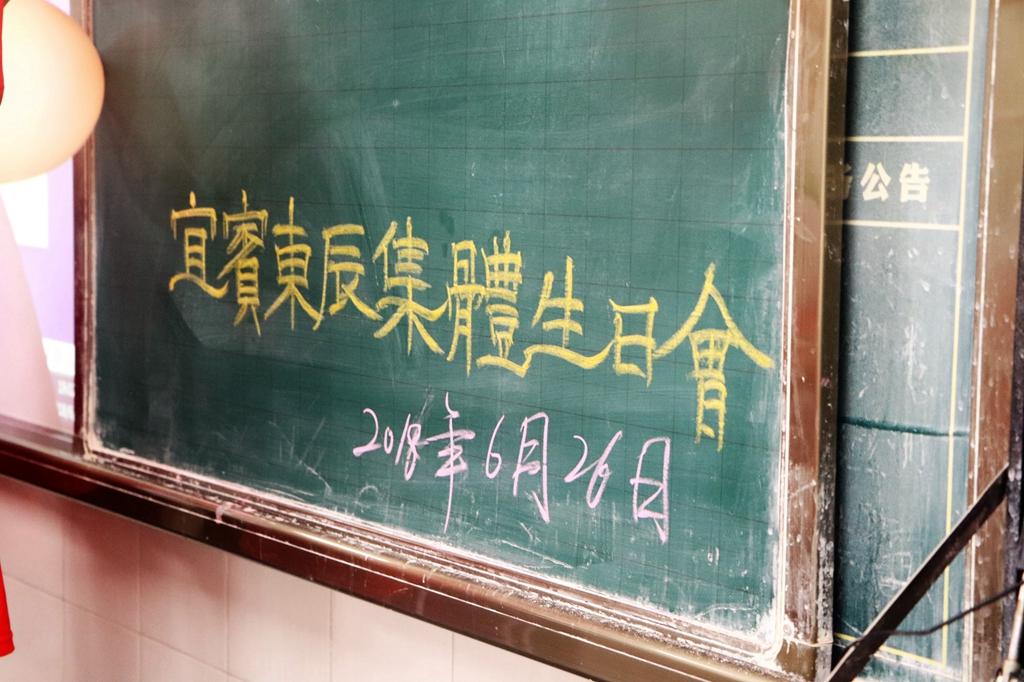 宜賓東辰集體生日會
2018年6月26日
公告